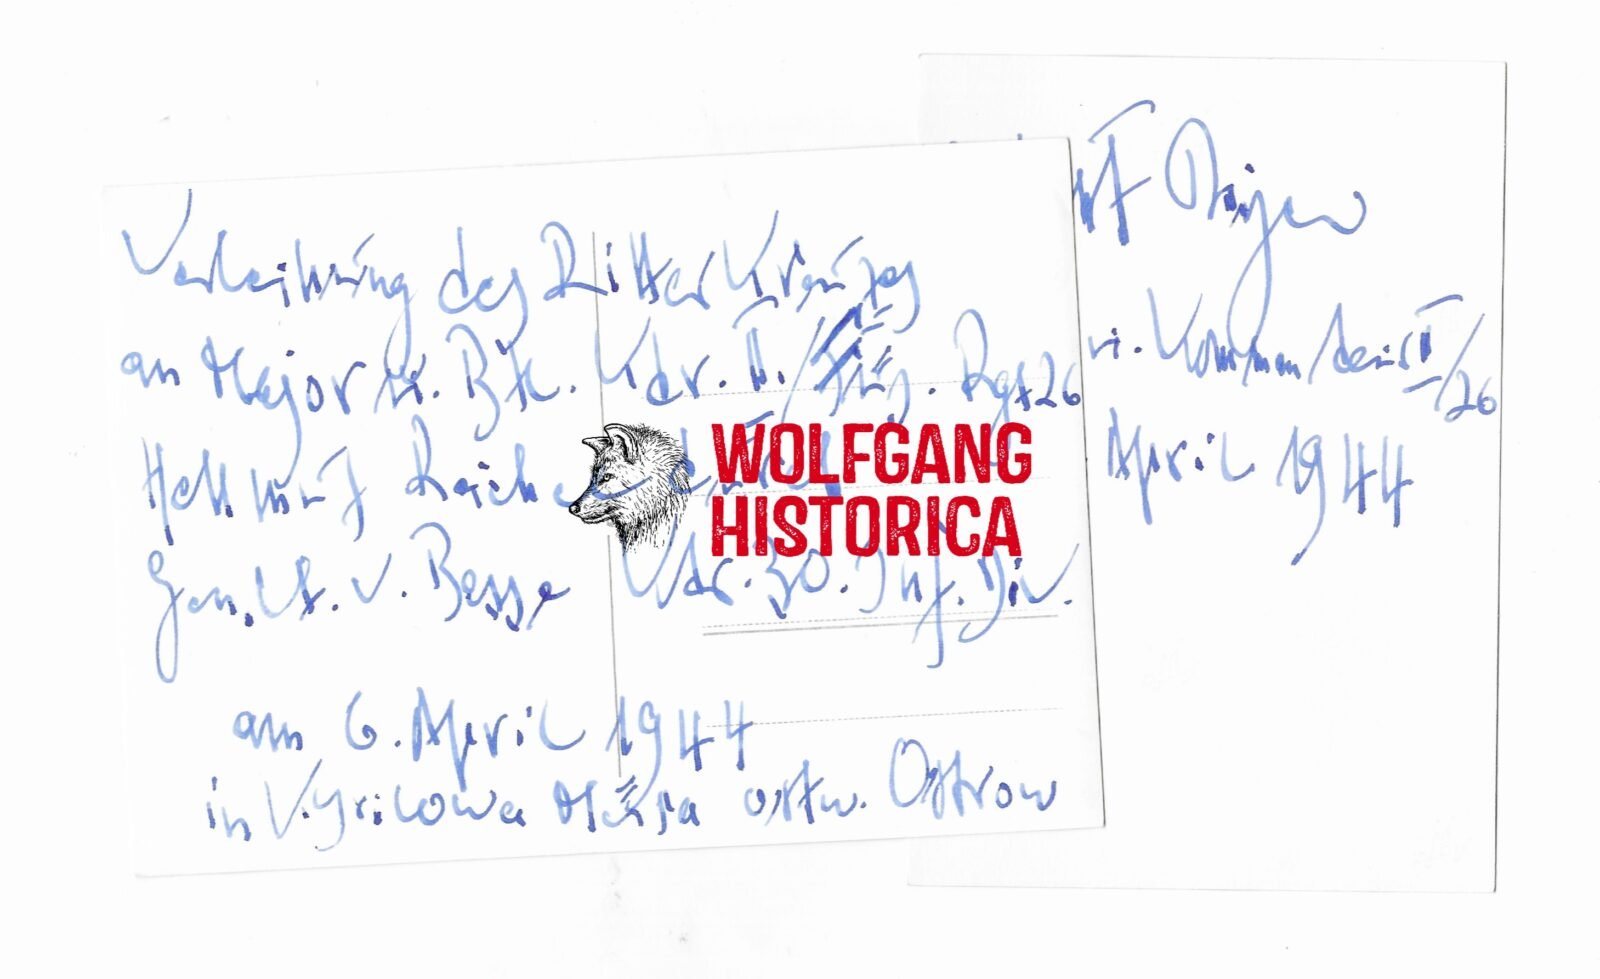 Verleihung des Ritterkreuzes
an Major u. Btl. Kdr. II./Füs. Rgt 26
Hellmuth
Gen. Lt. v. Basse Kdr. 30. Inf. Div.
am 6. April 1944
in Ostrow
u. Kommandeur II/26
April 1944
WOLFGANG
HISTORICA